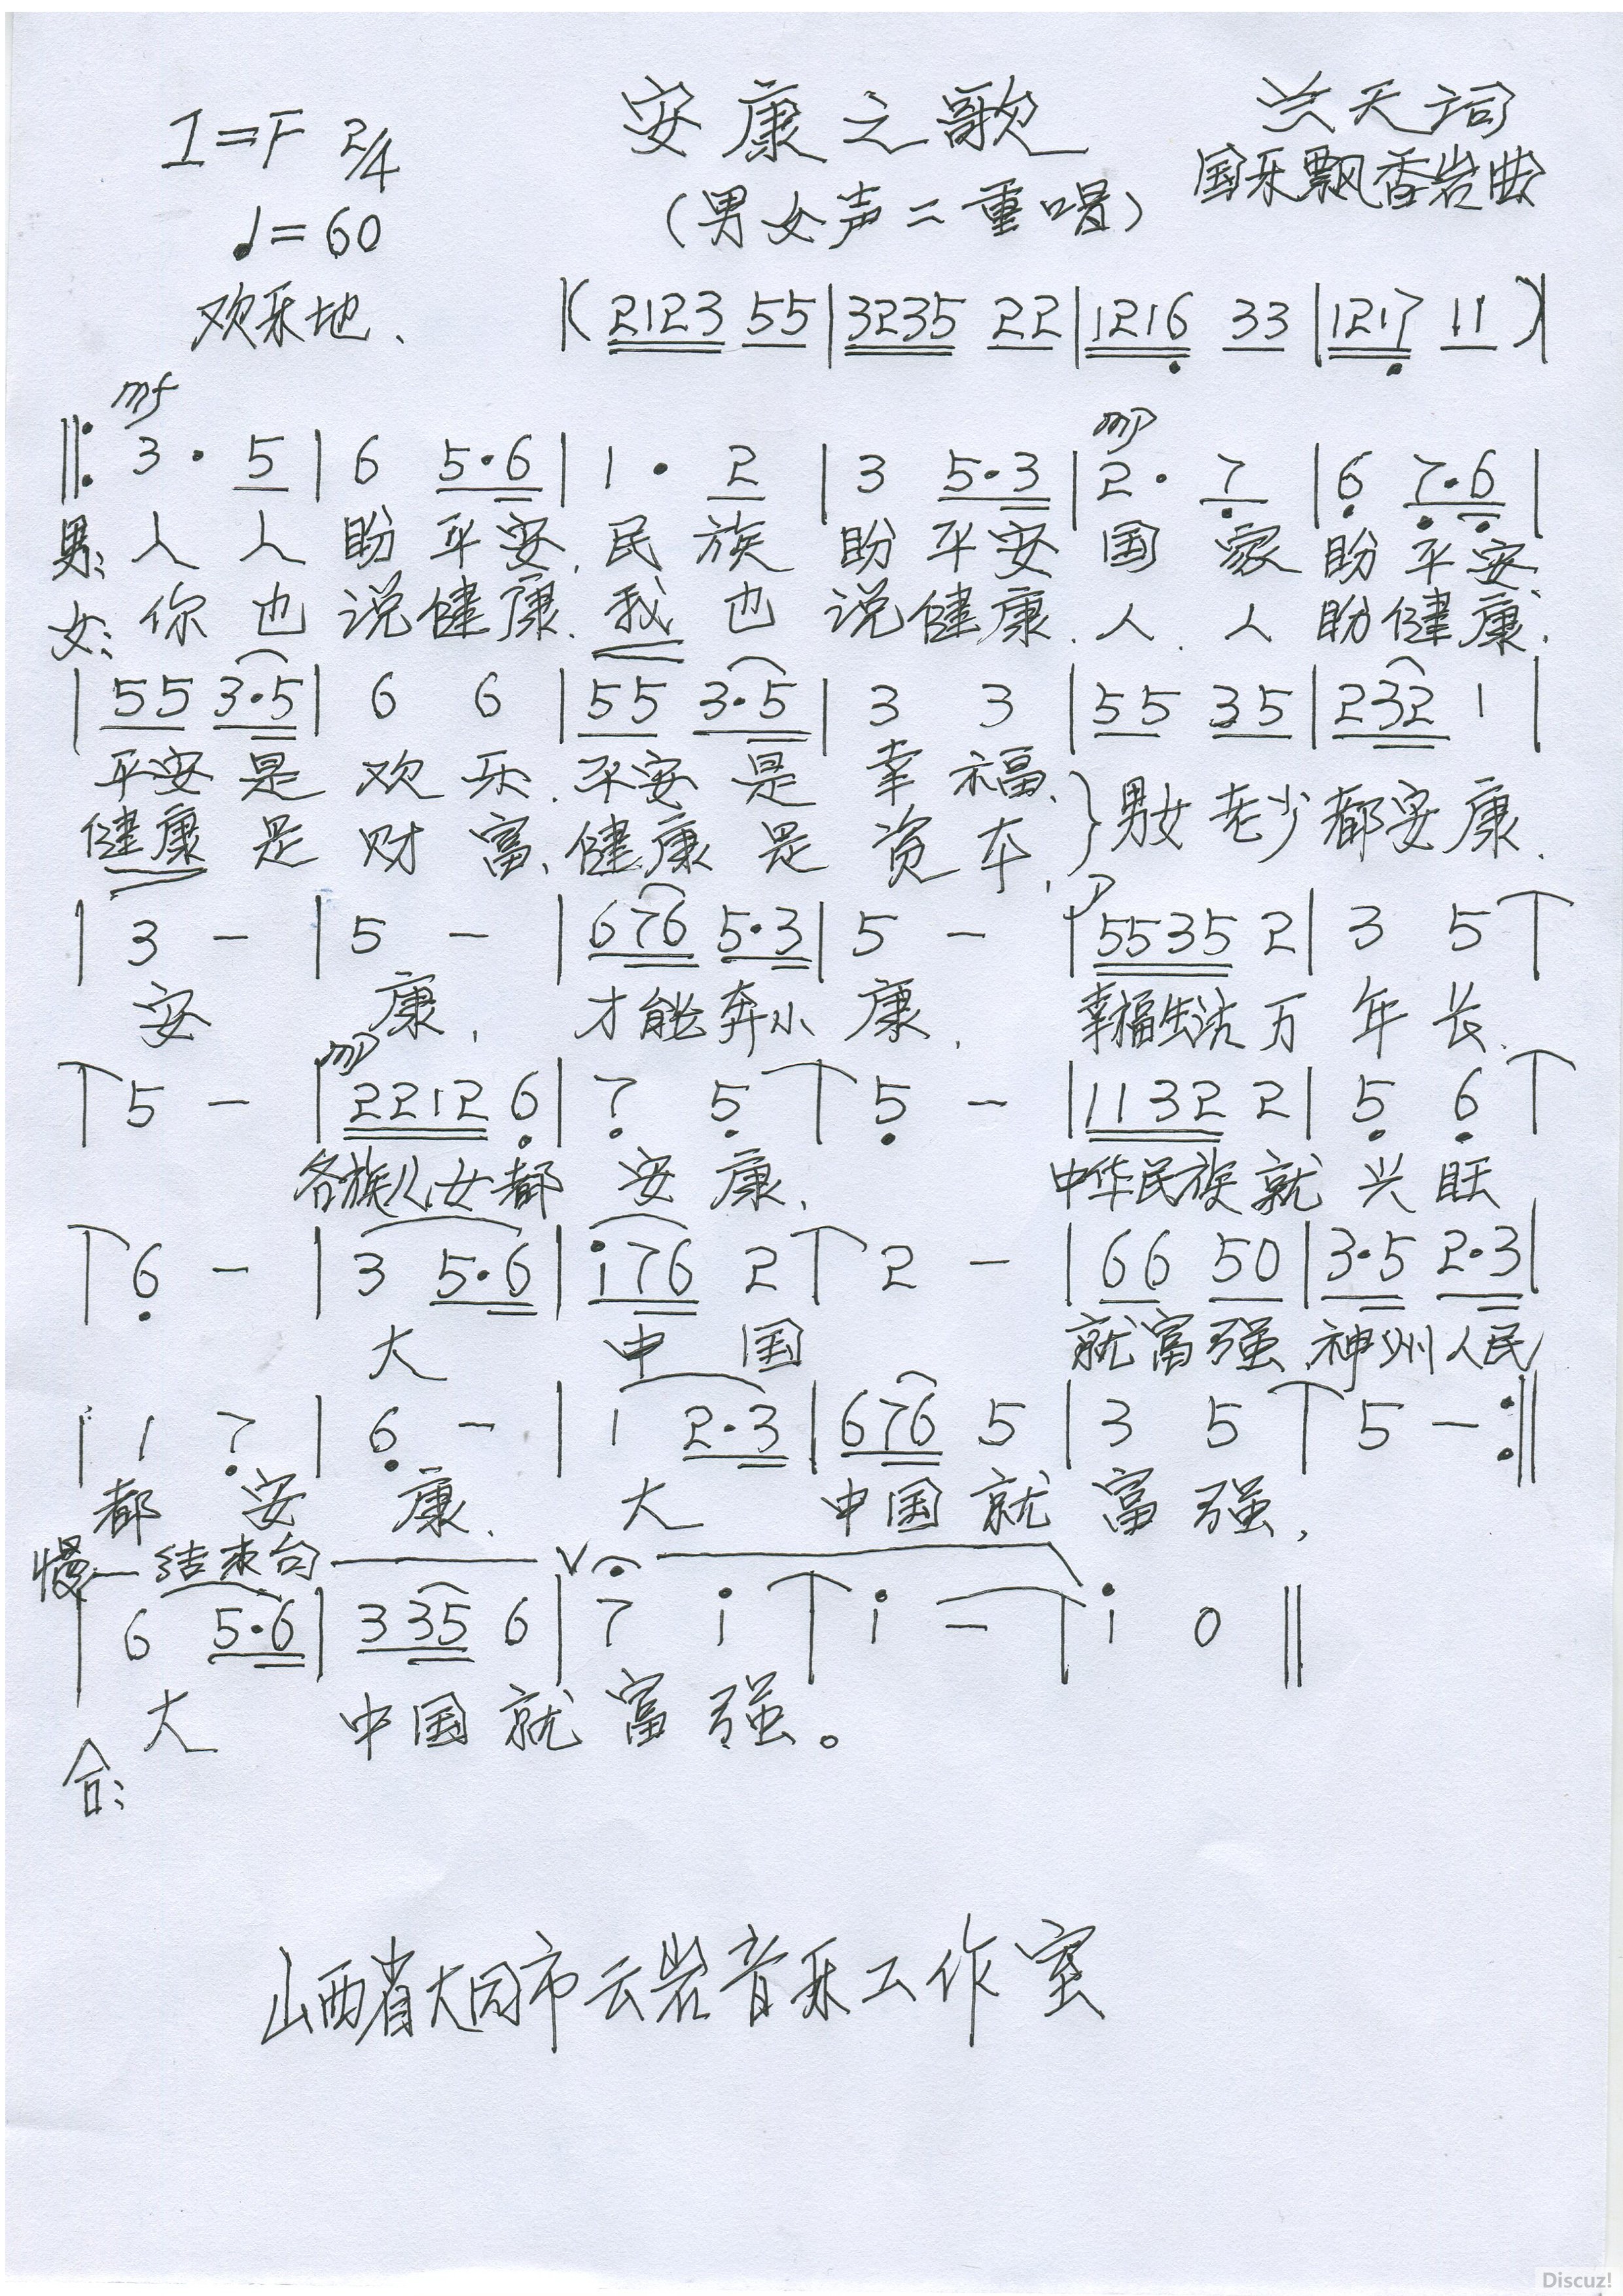 1=F 2/4 安康之歌 兴天词
♩=60 (男女声二重唱) 国乐飘香岩曲
欢乐地、 |( 2123 55 | 3235 22 | 1216 33 | 1217 11 )|
mf mp
‖: 3 · 5 | 6 5·6 | 1 · 2 | 3 5·3 | 2 · 7 | 6 7·6 |
男: 人 人 盼 平 安、民 族 盼 平 安 国 家 盼 平 安
女: 你 也 说 健 康、我 也 说 健 康、人 人 盼 健 康、
| 55 3·5 | 6 6 | 55 3·5 | 3 3 | 55 35 | 232 1 |
平安 是 欢 乐、平安 是 幸 福、} 男女 老少 都安 康、
健康 是 财 富、健康 是 资 本、
p
| 3 - | 5 - | 676 5·3 | 5 - | 5535 2 | 3 5 |
安 康、 才能奔小 康、 幸福生活 万 年 长、
mp
| 5 - | 2212 6 | 7 5 | 5 - | 1132 2 | 5 6 |
各族儿女 都 安 康、 中华民族 就 兴 旺
| 6 - | 3 5·6 | i76 2 | 2 - | 66 50 | 3·5 2·3 |
大 中 国 就富强、神州人民
| 1 7 | 6 - | 1 2·3 | 676 5 | 3 5 | 5 - :‖
都 安 康、 大 中国 就 富 强、
慢一结束句 V
| 6 5·6 | 335 6 | 7 i | i - | i 0 ‖
大 中国 就 富 强。
合:
山西省大同市云岩音乐工作室
Discuz!